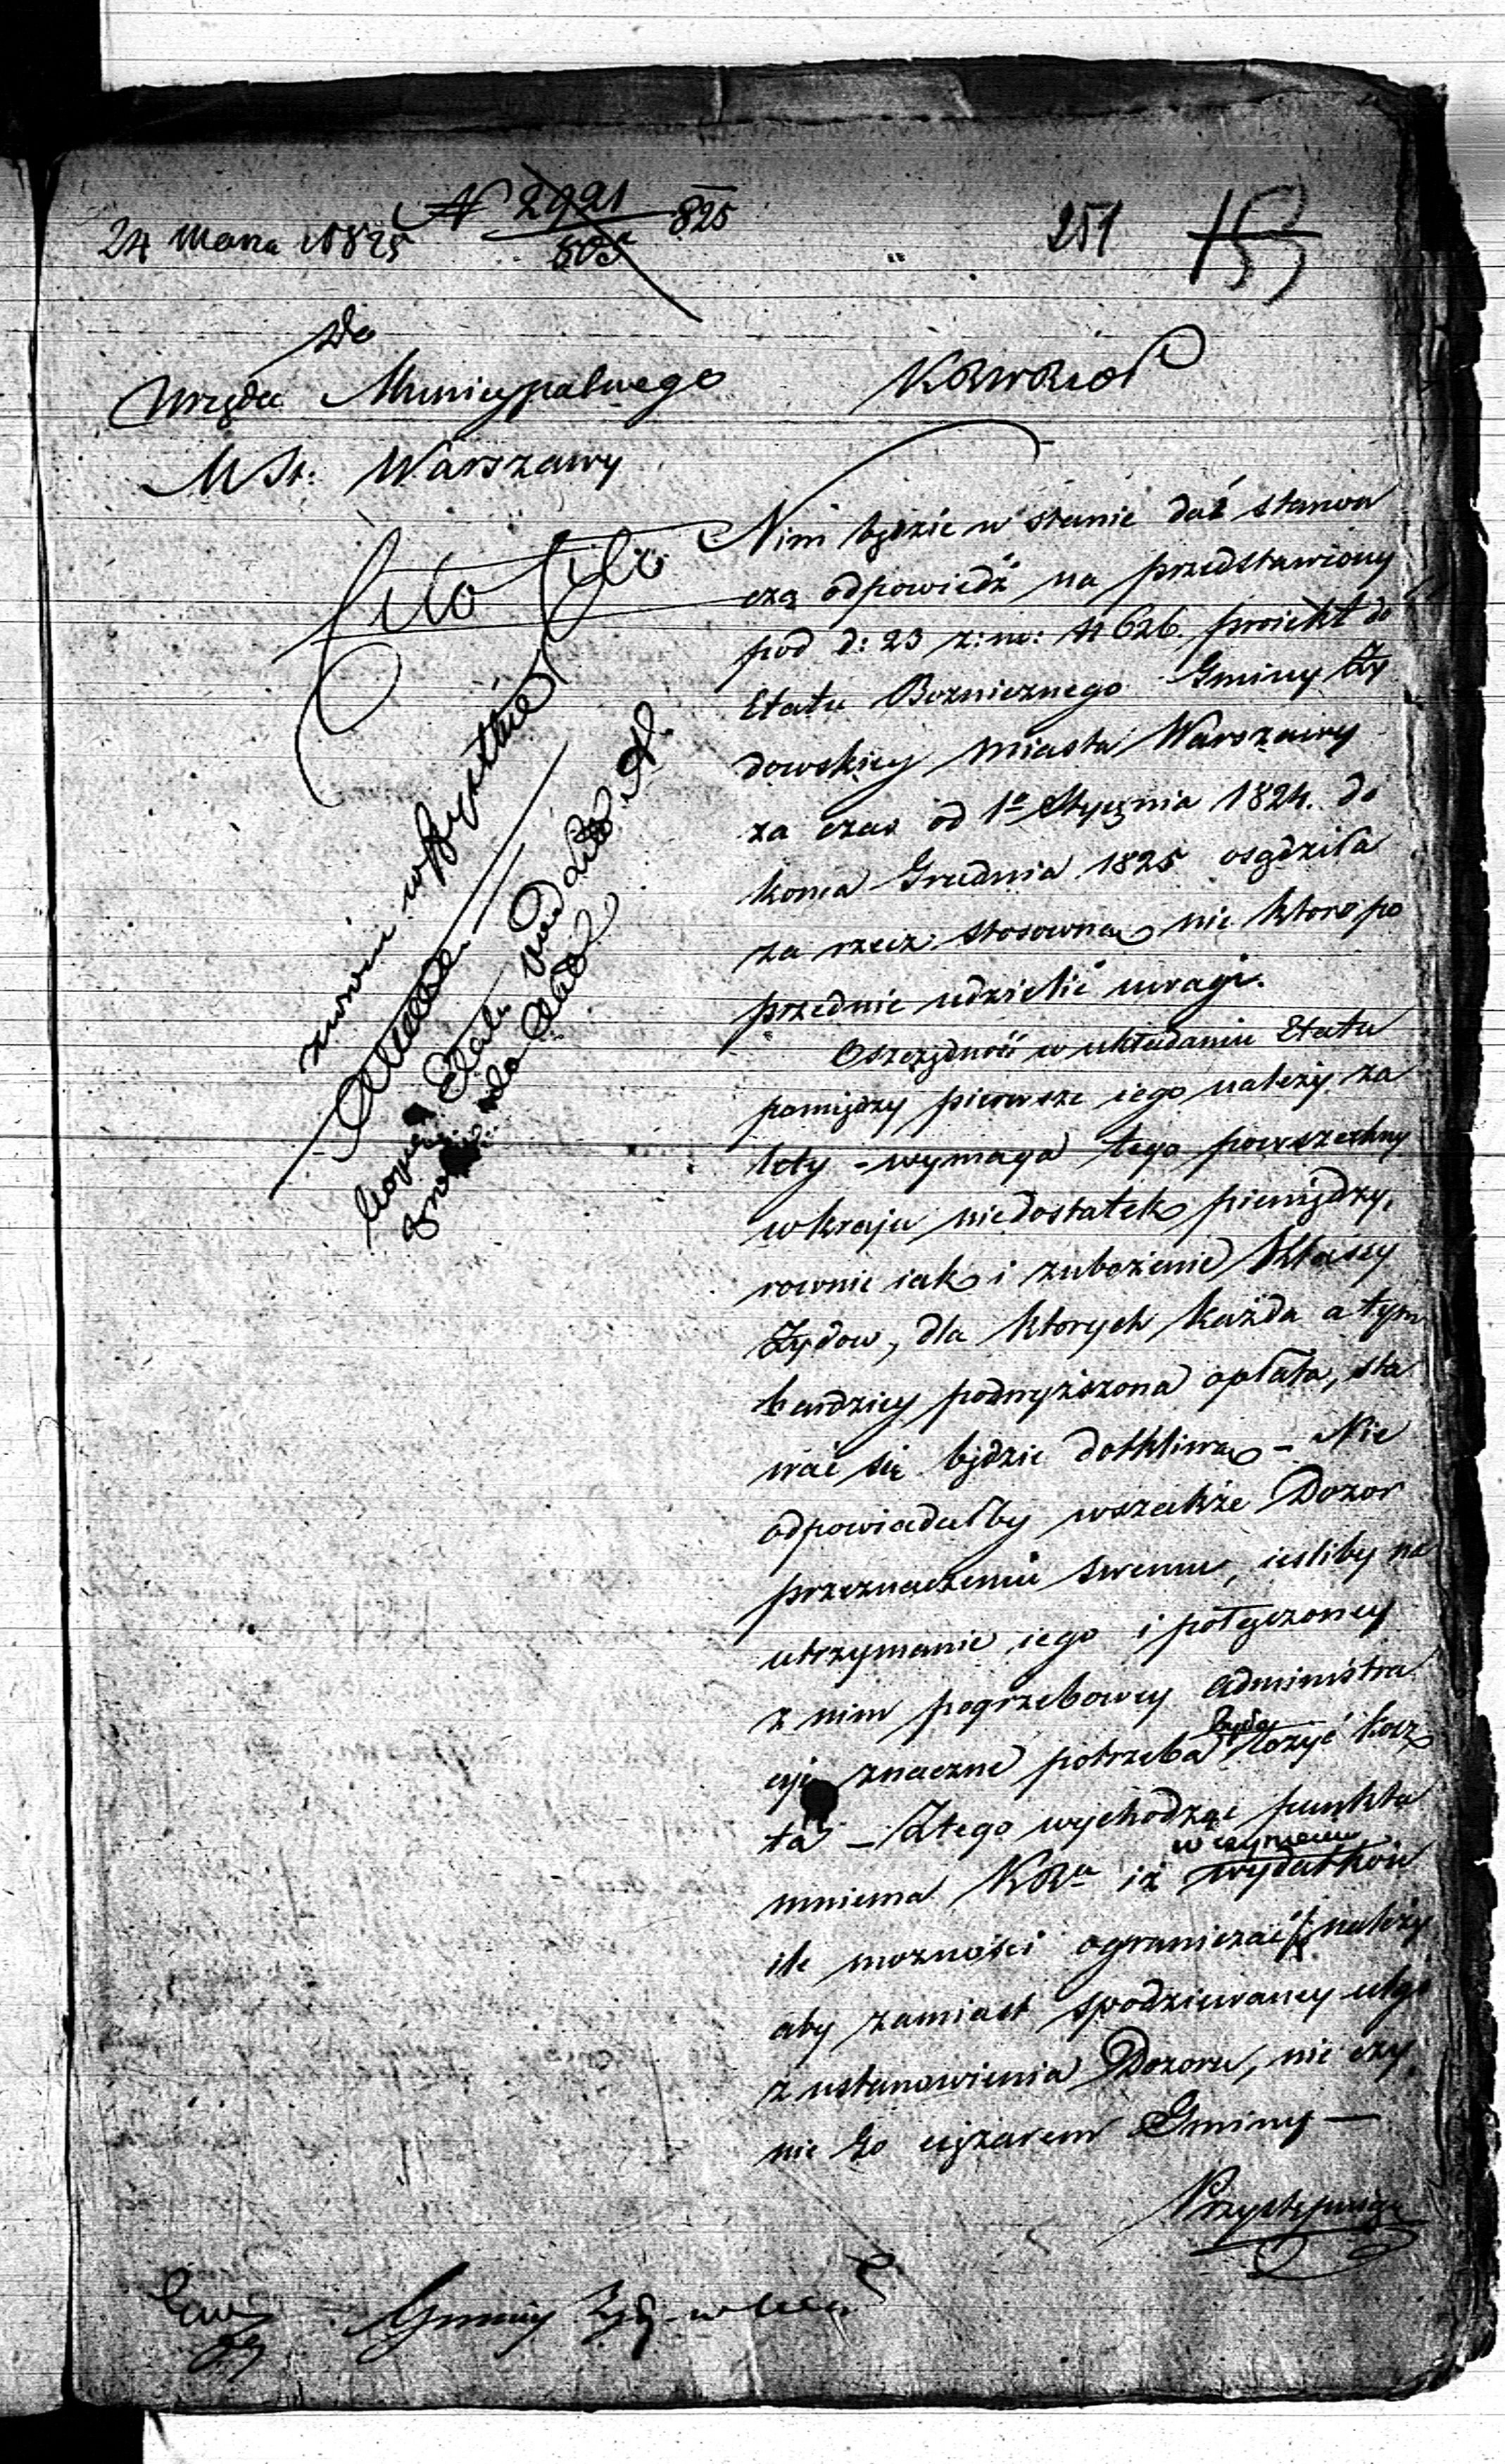 24 Marca 1825 N 2921/803 825
251 153
Do
Urzędu Municypalnego
M St: Warszawy
KRWRiOP
Cito Cito
Nim będzie w stanie dać stanow
czą odpowiedź na przedstawiony
pod d: 23 z: m: N 626. proiekt do
Etatu Bożnicznego Gminy Ży
dowskiey Miasta Warszawy
za czas od 1o Stycznia 1824. do
konca Grudnia 1825 osądziła
za rzecz stosowną nie ktore po
przednie udzielić uwagi.
Oszczędność w układaniu Etatu
pomiędzy pierwsze iego należy za
lety - wymaga tego powszechny
w kraju niedostatek pieniędzy,
rownie iak i zubożenie Klassy
Żydow, dla ktorych każda a tym
bardziey podwyższona opłata, sta
wać się będzie dotkliwą - Nie
odpowiadałby wszakże Dozor
przeznaczeniu swemu, iesliby na
utrzymanie iego i połączoney
z nim pogrzebowey administra
cyi znaczne potrzeba było łożyć kosz
ta - Z tego wychodząc punktu
mniema KRa iż w czynieniu wydatkow
ile możności ograniczać się należy
aby zamiast spodziewaney ulgi
z ustanowienia Dozoru, nie czy
nić go ciężarem Gminy -
Przystępuiąc
zwrócić wszystkie
kopią Etatu
Gminy Żydowskiey